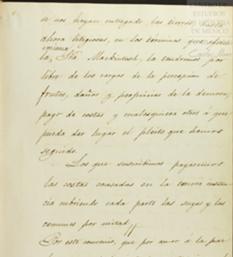 se nos hayan entregado las tierras, hasta
ahora litigiosas, en los términos que
la Sra. Mackintosh, la tendremos por
libre de los cargos de la percepcion de
frutos, daños y perjuicios de la demora,
pago de costas y cualesquiera otros á que
pueda dar lugar el pleito que hemos
seguido.
Los que suscribimos pagaremos
las costas causadas en la
cia cubriendo cada parte las suyas y las
comunes por mitad
Por este convenio, que por amor á la paz
ESTUDIOS
DE MÉXICO